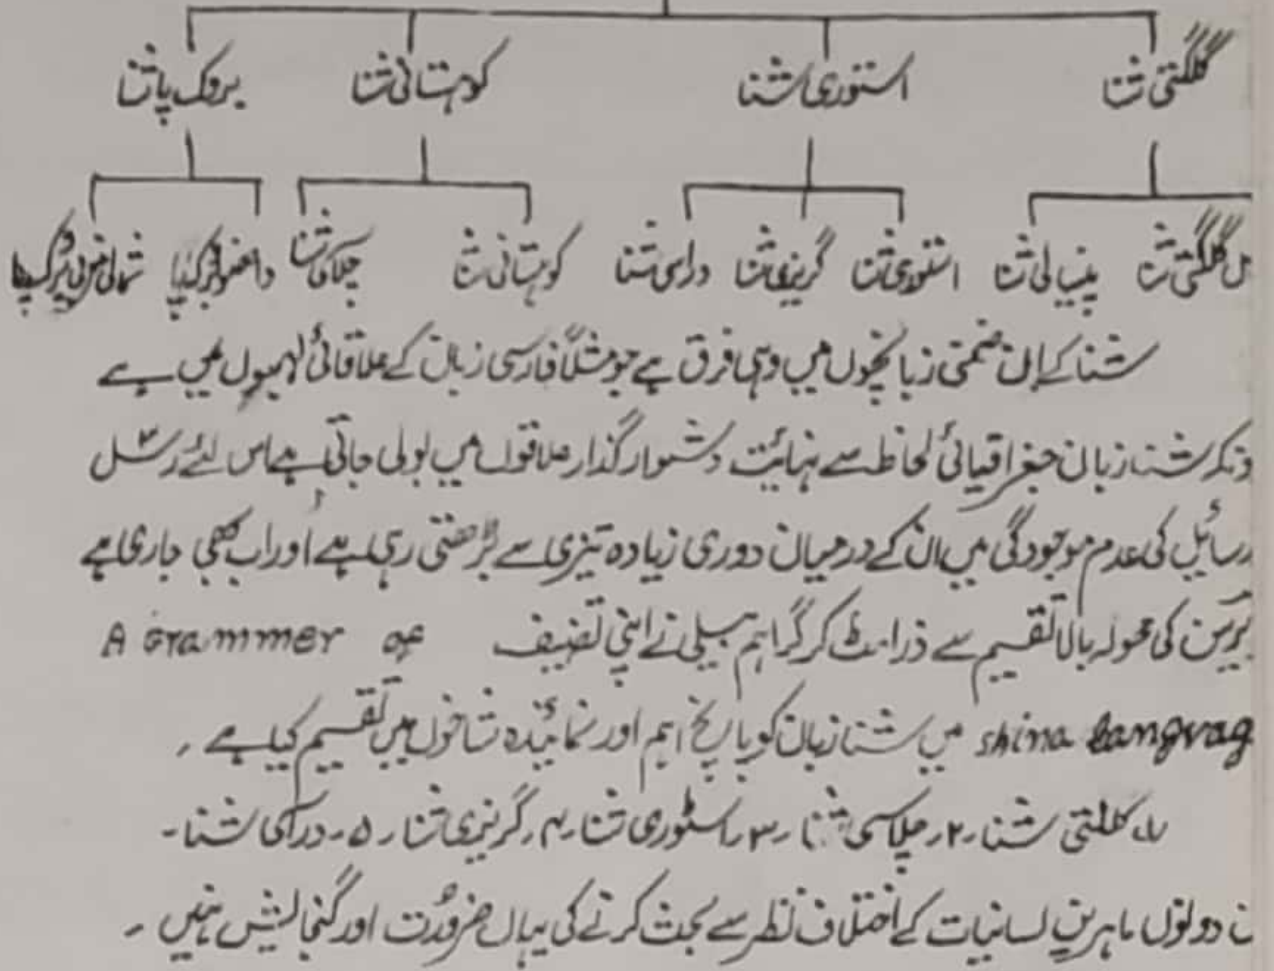 گلگتی شنا استوری شنا کوہستانی شنا بروک پا شنا
گلگتی شنا پنیالی شنا استوری شنا گریزی شنا دراسی شنا کوہستانی شنا چلاسی شنا
شنا کے ان ضمتی زبانچوں میں وہی فرق ہے جو مثلاً فارسی زبان کے علاقائی لہجوں میں ہے
شنا زبان جغرافیائی لحاظ سے نہائت دشوار گذار علاقوں میں بولی جاتی ہے اس لئے رسل
رسائیل کی عدم موجودگی میں ان کے درمیان دوری زیادہ تیزی سے بڑھتی رہی ہے اور اب بھی جاری ہے
کی محولہ بالا تقسیم سے ذرا ہٹ کر گراہم بیلی نے اپنی تصنیف A Grammer of
shina Langvag میں شنا زبان کو پانچ اہم اور نمائیندہ شاخوں میں تقسیم کیا ہے ۔
۱۔ گلگتی شنا ۔ ۲۔ چلاسی شنا ۔ ۳۔ استوری شنا ۔ ۴۔ گریزی شنا ۔ ۵۔ دراسی شنا ۔
دونوں ماہرین لسانیات کے اختلاف نظر سے بحث کرنے کی یہاں ضرورت اور گنجائیش نہیں ۔